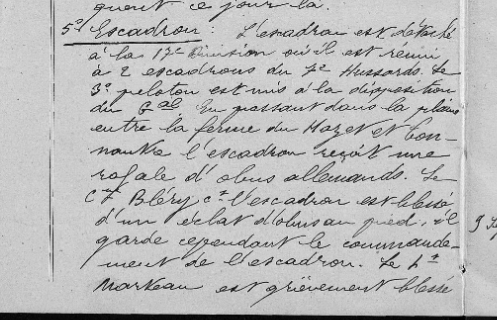 quent ce jour là.
5e Escadron: L'escadron est détaché
à la 17e Division où il est réuni
à 2 escadrons du 7e Hussards. Le
3e peloton est mis à la disposition
du Gal En passant dans la plaine
entre la ferme du Hozet et Con-
nantre l'escadron reçoit une
rafale d'obus allemands. Le
Cne Bléry ct l'escadron est blessé
d'un éclat d'obus au pied, il
garde cependant le commande-
ment de l'escadron. Le Lt
Marteau est grièvement blessé